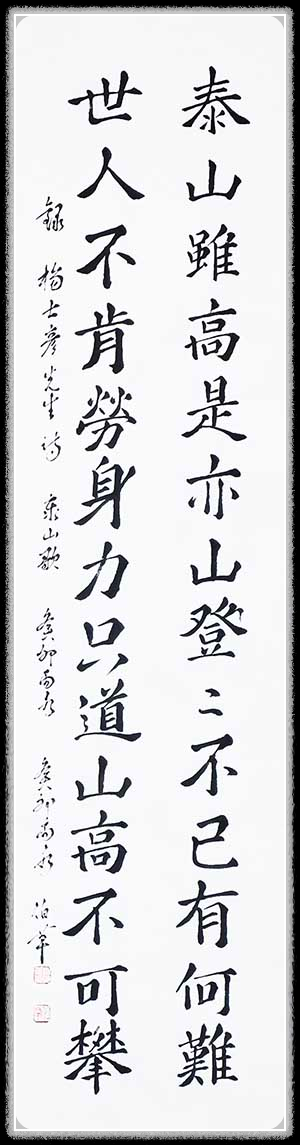 泰山雖高是亦山登〻不已有何難
世人不肯勞身力只道山高不可攀
録 楊士彦先生詩 泰山歌 癸卯雨水 癸卯雨水